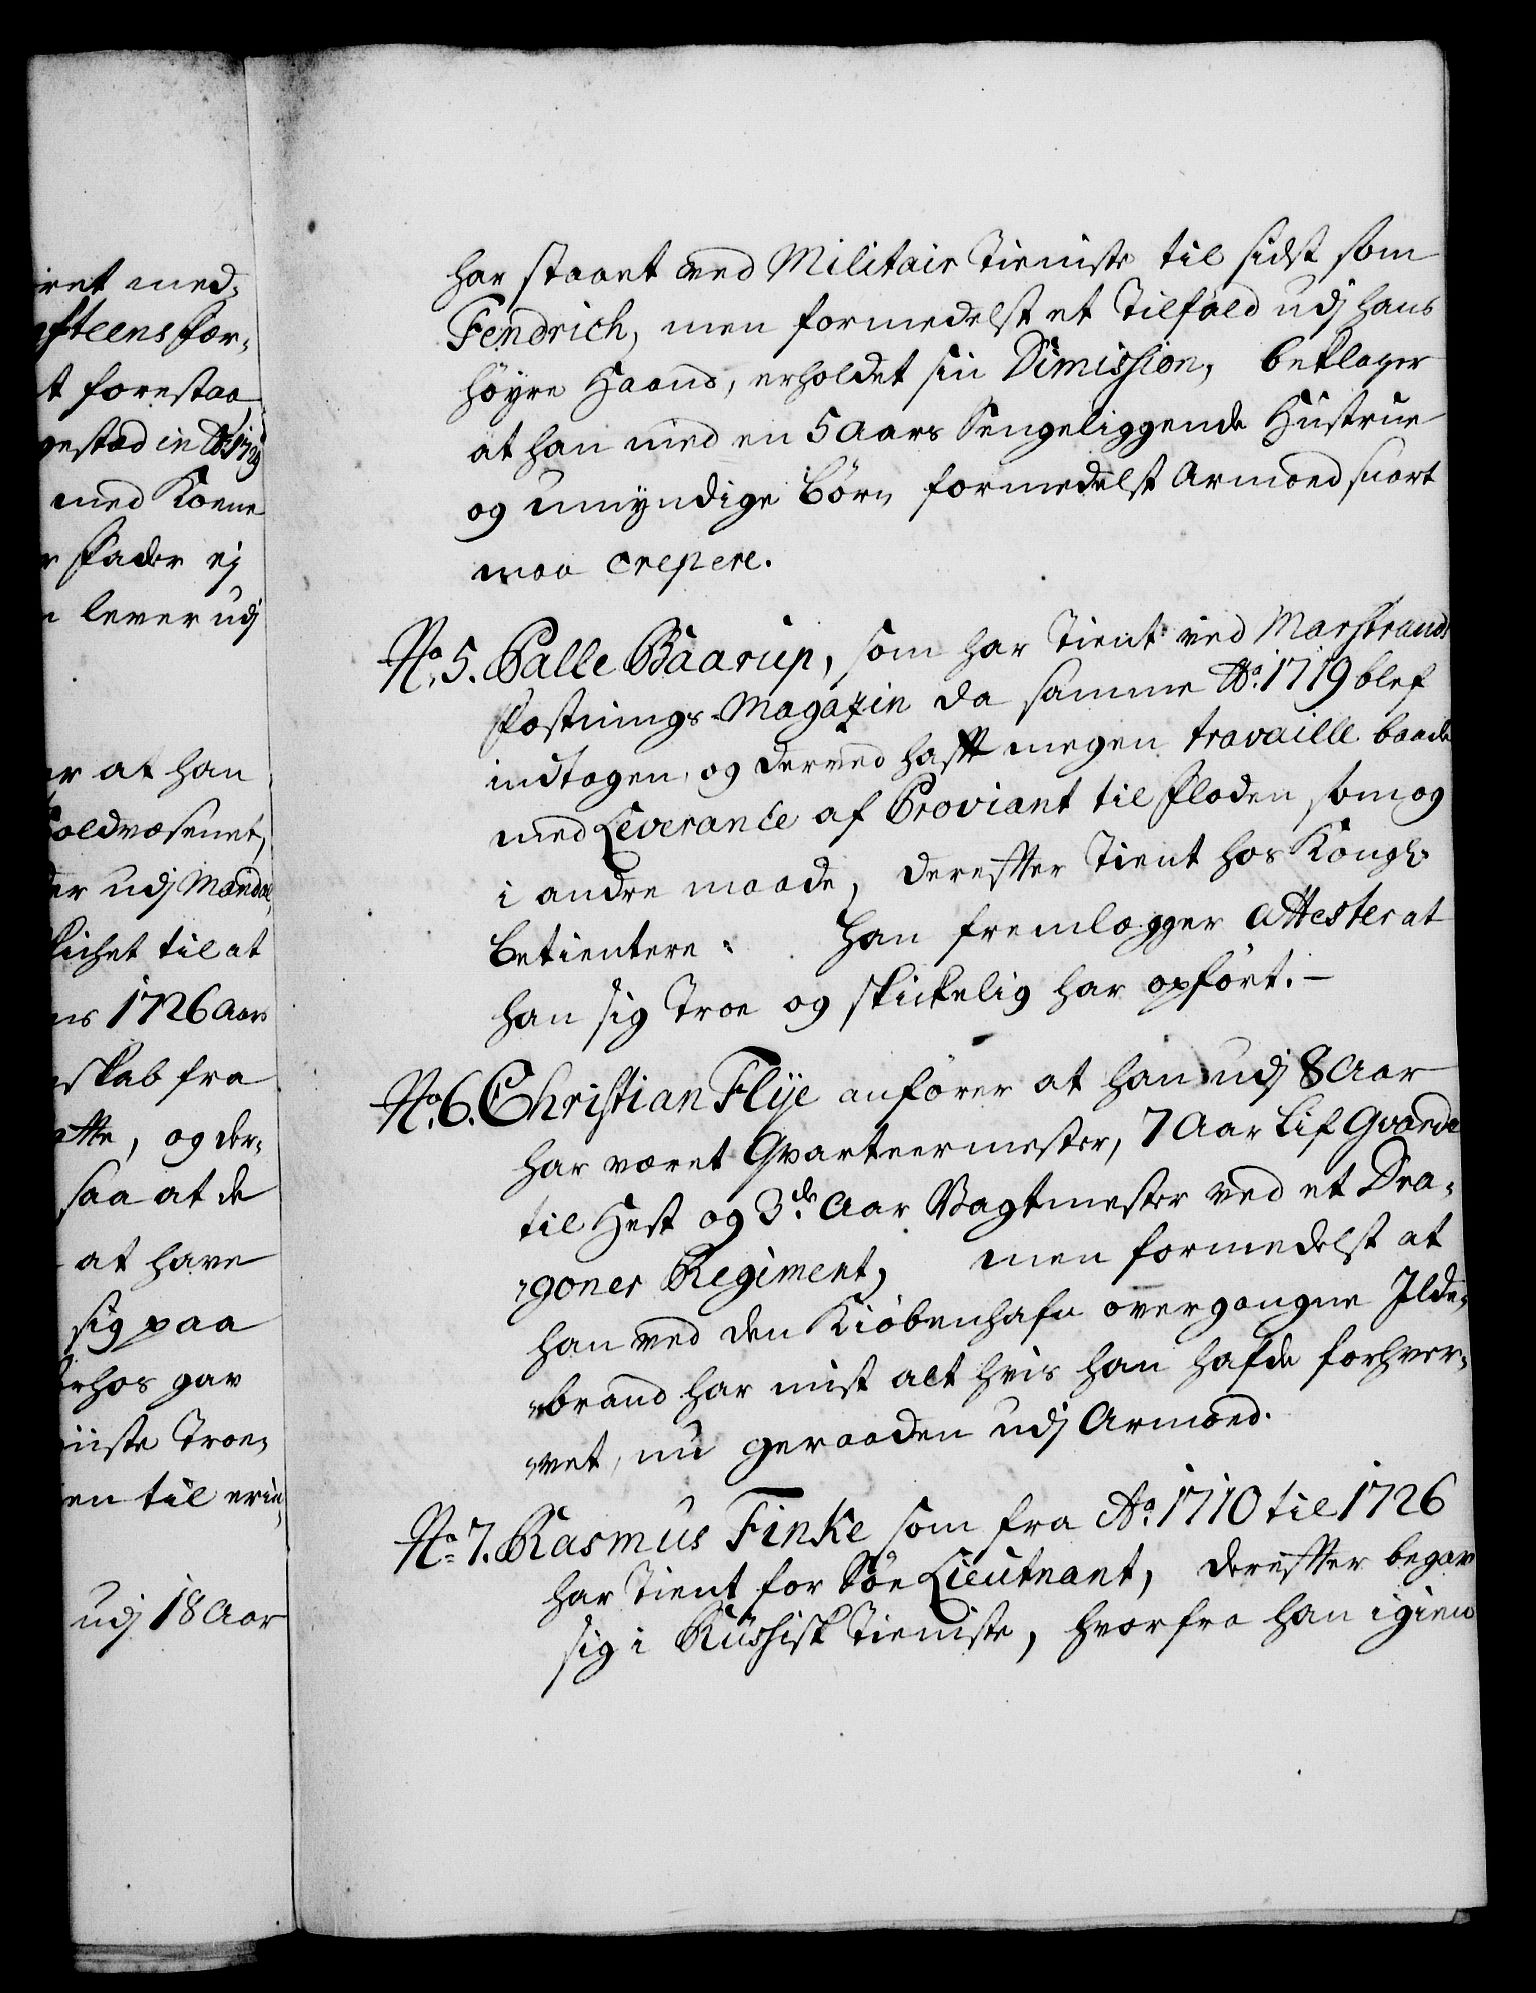 iret med,
afteens før,
t forestaa,
gested in Ao 1729
med Koene
r Fader ej
n lever udj
er at han
oldvæsenet,
der udj Mandal,
skichet til at
ns 1726 Aars
nskab fra
atte, og der,
saa at de
at have
sig paa
erhos gav
niste Troe,
en til erin,
udj 18 Aar
har staaet ved Militair Tieniste til sidst som
Fendrich, men formedelst et Tilfæld udj hans
høyre Haand, erholdet sin Dimission, beklager
at han med en 5 Aars Sengeliggende Hustrue
og umÿndige Børn formedelst Armoed snart
maa crepere.
No. 5. Palle Baarup, som har Tient ved Marstrands
Fæstnings-Magazin da samme Ao. 1719 blef
indtagen, og derved hafft megen travaille baade
med Leverance af Proviant til Floden som og
i andre maade, derefter Tient hos Kongl.
betientere. Han fremlægger attester at
han sig Troe og skickelig har opført.-
No. 6. Christian Flÿe anfører at han udj 8 Aar
har været Qvarteermester, 7 Aar Lif Gvarde
til Hest og 3de. Aar Vagtmester ved et Dra,
,goner Regiment, men formedelst at
han ved den Kiöbenhafn overgangne Ilde,
,brand har mist alt hvis han hafde forhver,
,vet, nu geraaden udj Armoed.
No. 7. Rasmus Finke som fra Ao. 1710 til 1726
har Tient for Søe Lieutnant, derefter begav
sig i Russisk Tieniste, hvorfra han igien